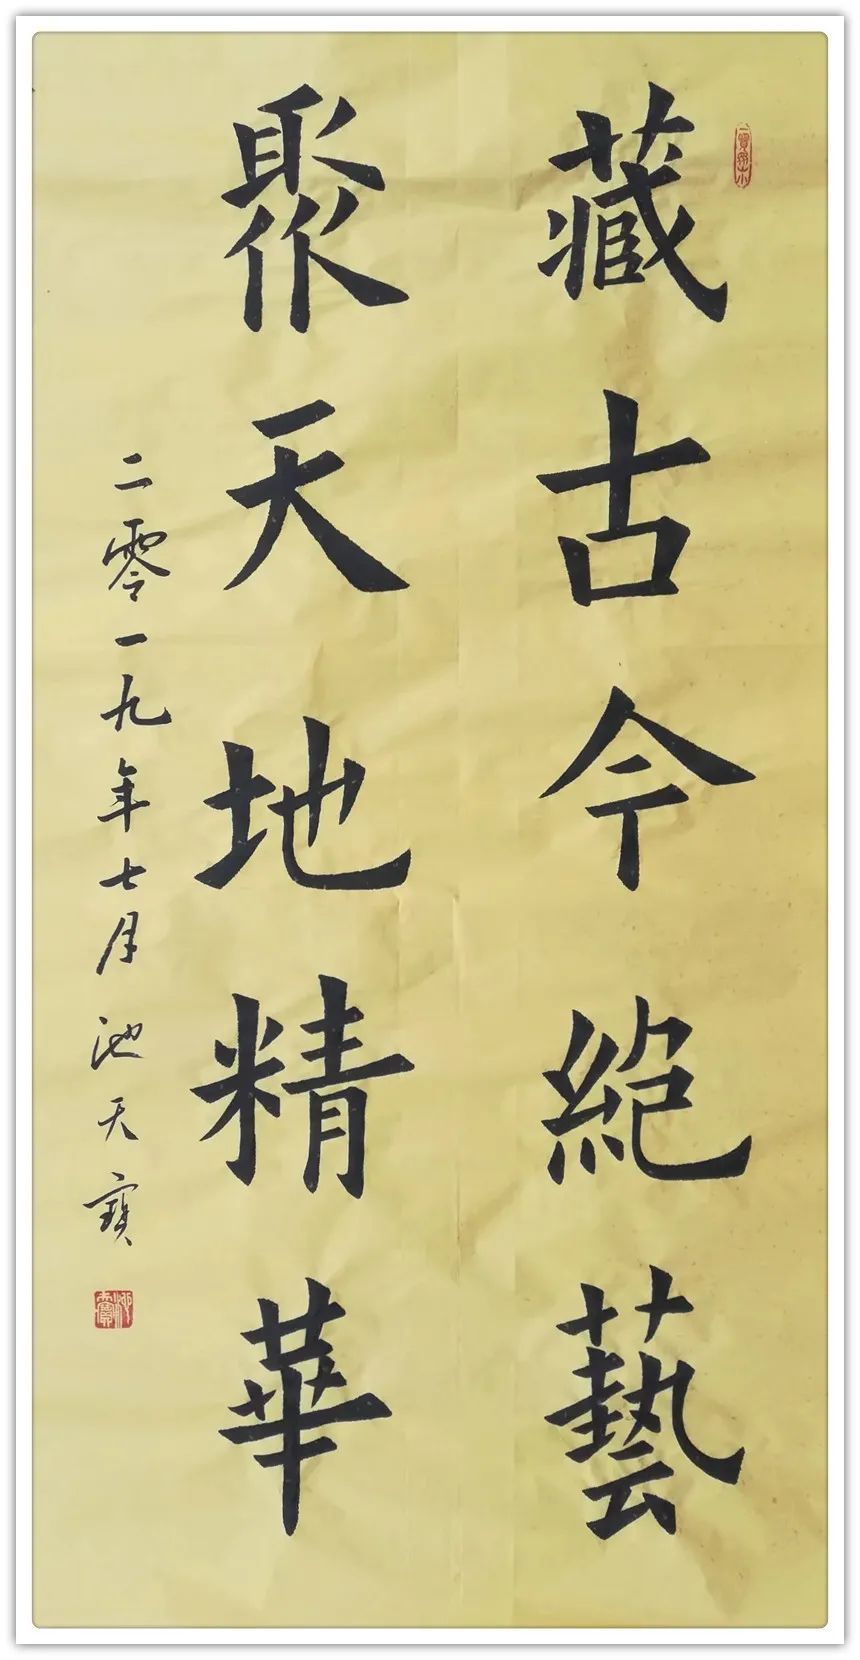 藏古今絶藝
聚天地精華
二零一九年七月池天寶